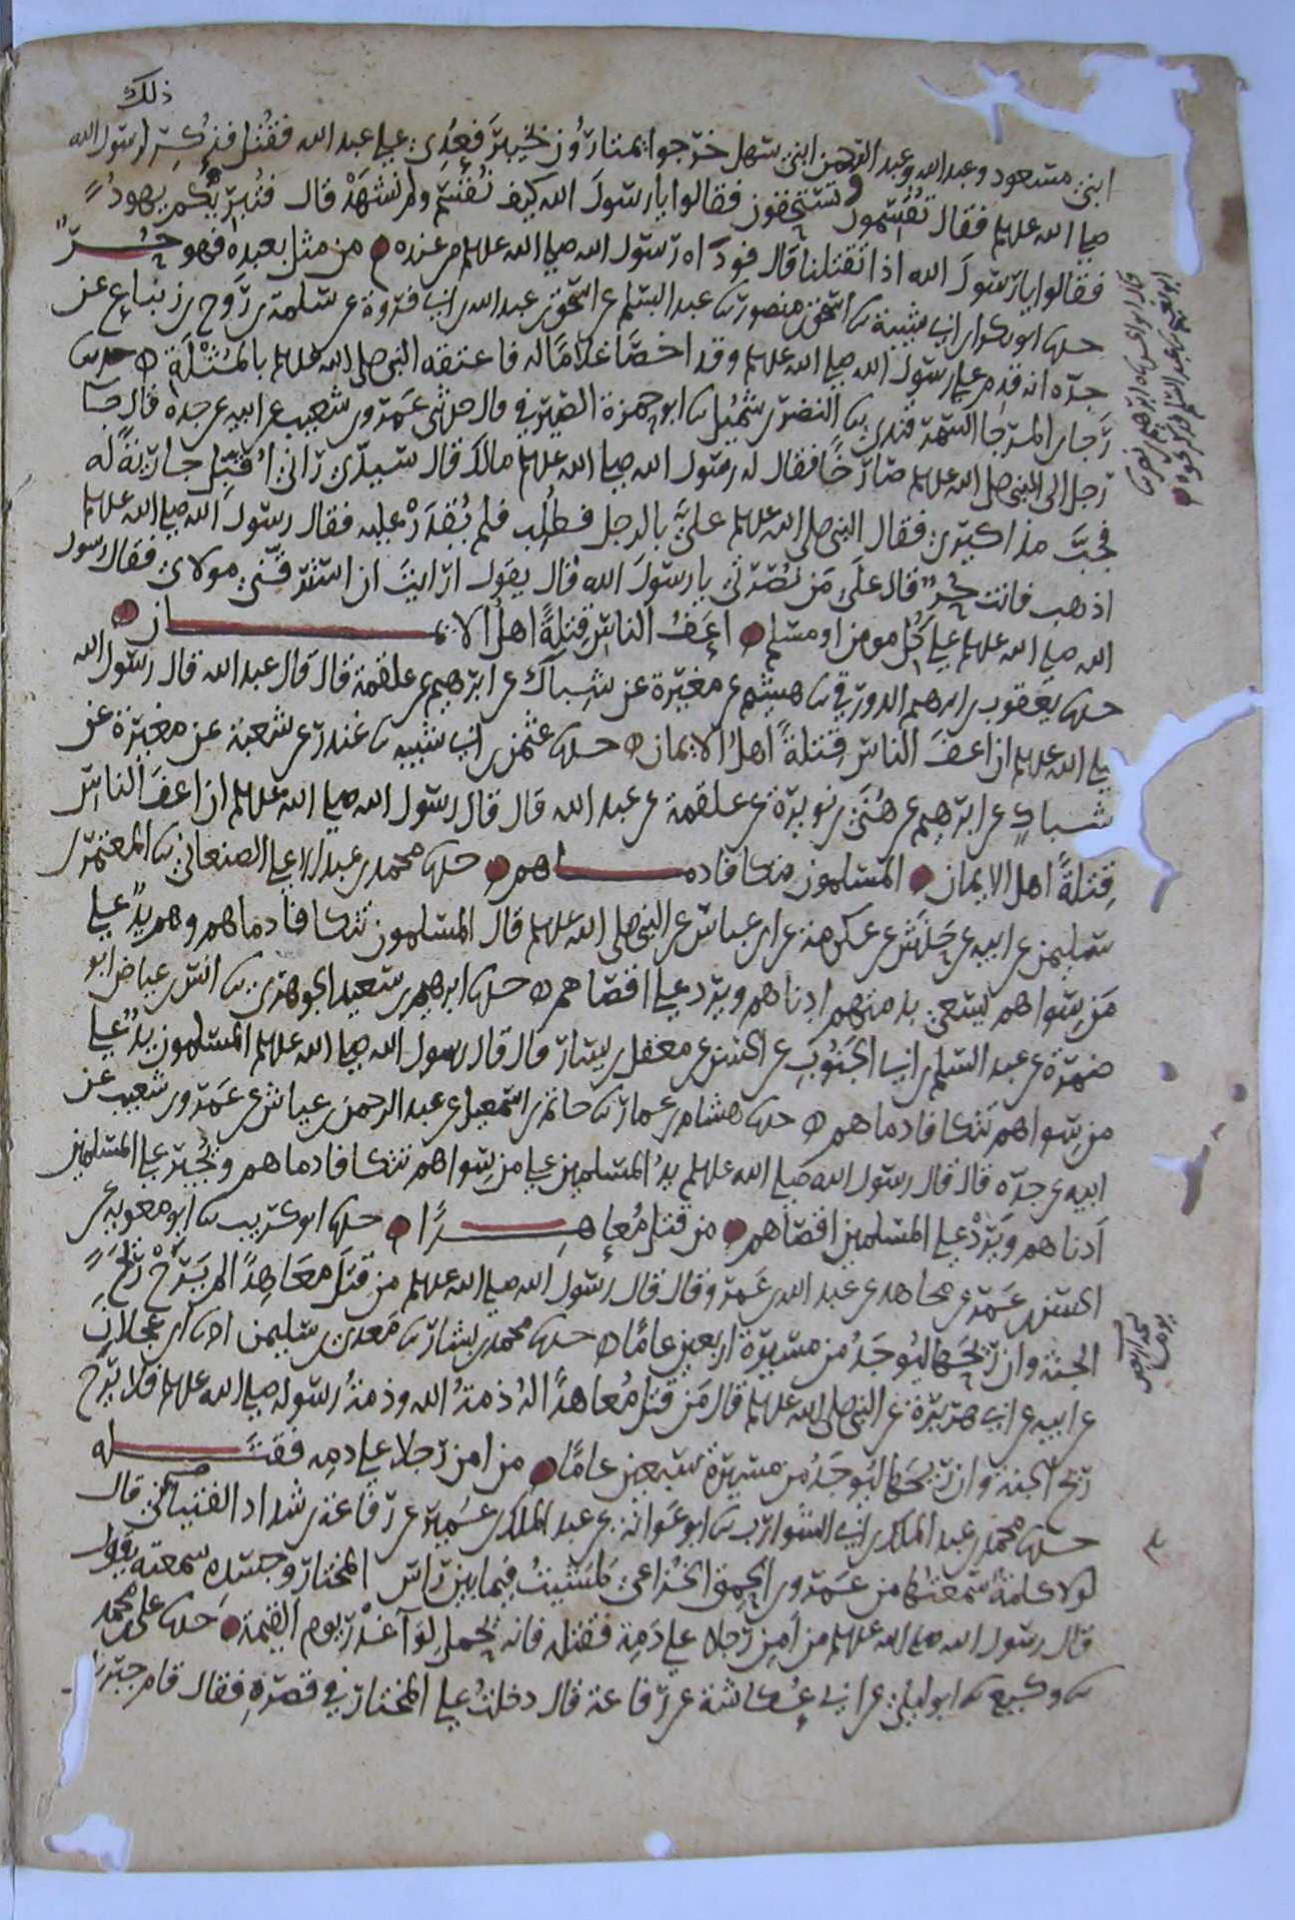 ذلك
ابني مسعود وعبد الله وعبد الرحمن ابني سهل خرجوا يمتارون بخيبر فعُدِي على عبد الله فقُتل فذُكر لرسول الله
صلى الله عليه وسلم فقال تُقسِمون وتستحقون فقالوا يا رسولَ الله كيف نُقسِم ولم نشهَدْ قال فتُبريكم يهودُ
فقالوا يا رسولَ الله اذا تقتلنا قال فودَاه رسول الله صلى الله عليه وسلم من عنده من مثل بعبده فهو حُــرّ
حدثنا ابو بكر بن ابي شيبة ثنا اسحق بن منصور ثنا عبد السلم عن اسحق بن عبد الله بن ابي فروة عن سلمة بن رَوح بن زنباع عن
جدّه انه قدم على رسول الله صلى الله عليه وسلم وقد اخصَا غلامًا له فاعتقه النبي صلى الله عليه وسلم بالمُثْلَة حدثنا
رَجا بن المرجا السمرقندي ثنا النضر بن شُميل ثنا ابو حمزة الصيرفي قال حدثني عَمرو بن شعيب عن ابيه عن جده قال جا
رجل الى النبي صلى الله عليه وسلم صارخًا فقال له رسول الله صلى الله عليه وسلم مالك قال سيدي رَاني اُقبّل جاريةً له
فجبَّ مذاكيري فقال النبي صلى الله عليه وسلم عليَّ بالرجل فطُلِب فلم يُقدَرْ عليه فقال رسول الله صلى الله عليه وسلم
اذهب فانت حُرّ قال علَى مَن نُصْرتي يا رسولَ الله قال يقول ارايتَ ان استرقّني مولاي فقال رسول
الله صلى الله عليه وسلم على كُل مومن او مسلم اعَفُ الناس قِتلةً اهلُ الايمــان
حدثنا يعقوب بن ابرهيم الدورقي ثنا هشيم عن مغيرة عن شِباك عن ابرهيم عن علقمة قال قال عبد الله قال رسول الله
صلى الله عليه وسلم ان اعفَّ الناس قِتلةً اهلُ الايمان حدثنا عثمن بن ابي شيبه ثنا غندر عن شعبة عن مغيرة عن
شباكٍ عن ابرهيم عن هُنَي بن نويرة عن علقمة عن عبد الله قال قال رسول الله صلى الله عليه وسلم ان اعفَ الناس
قِتلةً اهل الايمان المسلمون تتكافا دمــاهم حدثنا محمد بن عبد الاعلى الصنعاني ثنا المعتمر بن
سليمن عن ابيه عن حَنَش عن عكرمة عن ابن عباس عن النبي صلى الله عليه وسلم قال المسلمون تتكافا دماهم وهم يدٌ على
مَن سِواهم يسعى بذمتهم ادناهم ويرد على اقصاهم حدثنا ابرهيم بن سعيد الجوهري ثنا انس بن عياض ابو
ضمرة عن عبد السلم بن ابي الجَنُوب عن الحسن عن معقل بن يسار قال قال رسول الله صلى الله عليه وسلم المسلمون يدٌ على
من سِواهم تتكافا دماهم حدثنا هشام بن عمار ثنا حاتم بن اسمعيل عن عبد الرحمن بن عياش عن عَمرو بن شعيب عن
ابيه عن جدّه قال قال رسول الله صلى الله عليه وسلم يدُ المسلمين على من سِواهم تتكافا دماهم ويُجير على المسلمين
اَدناهم ويَرُد على المسلمين اقصاهم من قتل مُعاهِــدًا حدثنا ابو كريب ثنا ابو معوية عن
الحسن بن عَمرو عن مجاهد عن عبد الله بن عَمرو قال قال رسول الله صلى الله عليه وسلم من قتل معاهِدًا لم يَرَحْ رايحَةَ
الجنة وان ريحَها ليُوجَدُ من مسيرة اربعين عامًا حدثنا محمد بن بشار ثنا معدي بن سليمن انبا ابن عجلان
عن ابيه عن ابي هريرة عن النبي صلى الله عليه وسلم قال مَن قتل مُعاهدًا له ذمةُ الله وذمةُ رسوله صلى الله عليه وسلم فلا يرَح
ريح الجنة وان ريحَها ليُوجَدُ من مسيرة سبعين عامًا من امن رجلا على دمِه فقتَــله
حدثنا محمد بن عبد الملك بن ابي الشوارب ثنا ابو عَوانة عن عبد الملك بن عُمير عن رفاعة بن شداد الفتياني قال
لولا كلمةٌ سمعتُها من عَمرو بن الحَمِق الخُزاعي لمشيتُ فيما بين راس المختار وجسده سمعته يقول
قال رسول الله صلى الله عليه وسلم من اَمِن رجلا على دَمِه فقتله فانه يُحمل لِوا غدْر يوم القيمة حدثنا علي بن محمد
ثنا وكيع ثنا ابو ليلى عن ابي عُكاشة عن رفاعة قال دخلتُ على المختار في قصره فقال قام جبريل